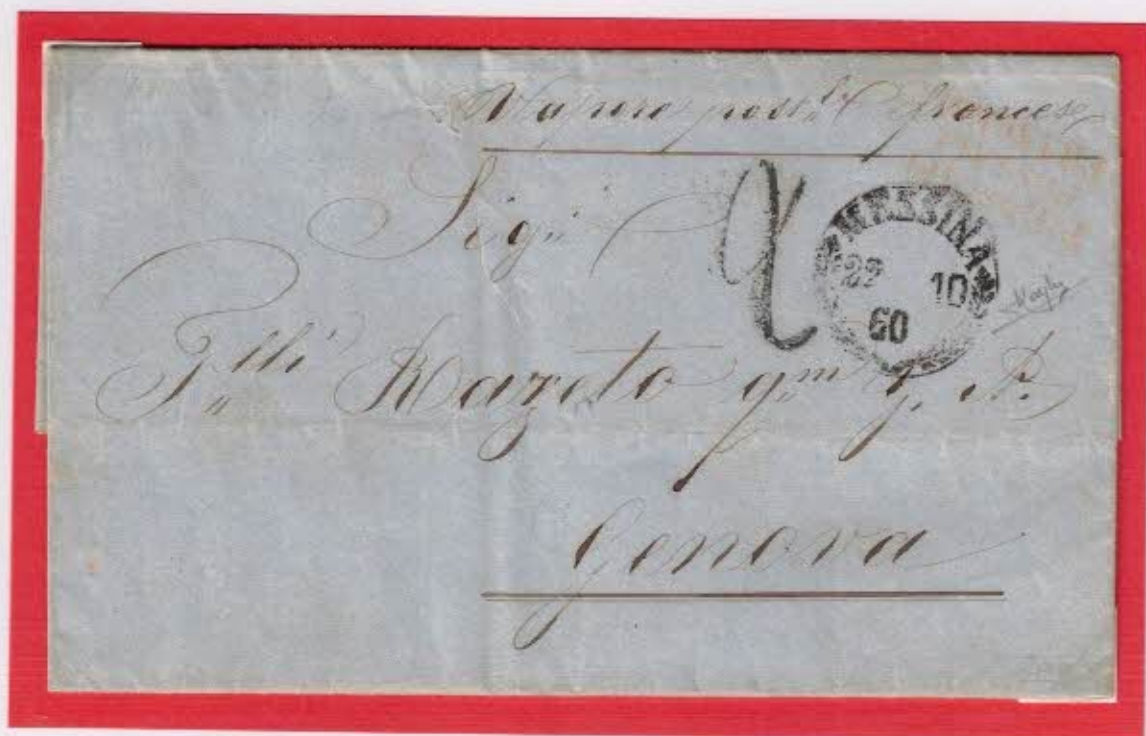 Vapore post.le francese
Sig.ri
MESSINA
22 10
60
F.lli Razeto qm g. B.
Genova